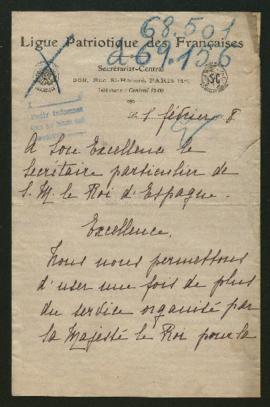 68.501
à 69.156
Ligue Patriotique des Françaises
Secrétariat-Central
368, Rue St-Honoré, PARIS (1er)
Téléphone : Central
Le 1 février 8
A Son Excellence le
Secrétaire particulier de
S. M. le Roi d'Espagne.
Excellence,
Nous nous permettons
d'user une fois de plus
du service organisé par
sa Majesté le Roi pour la